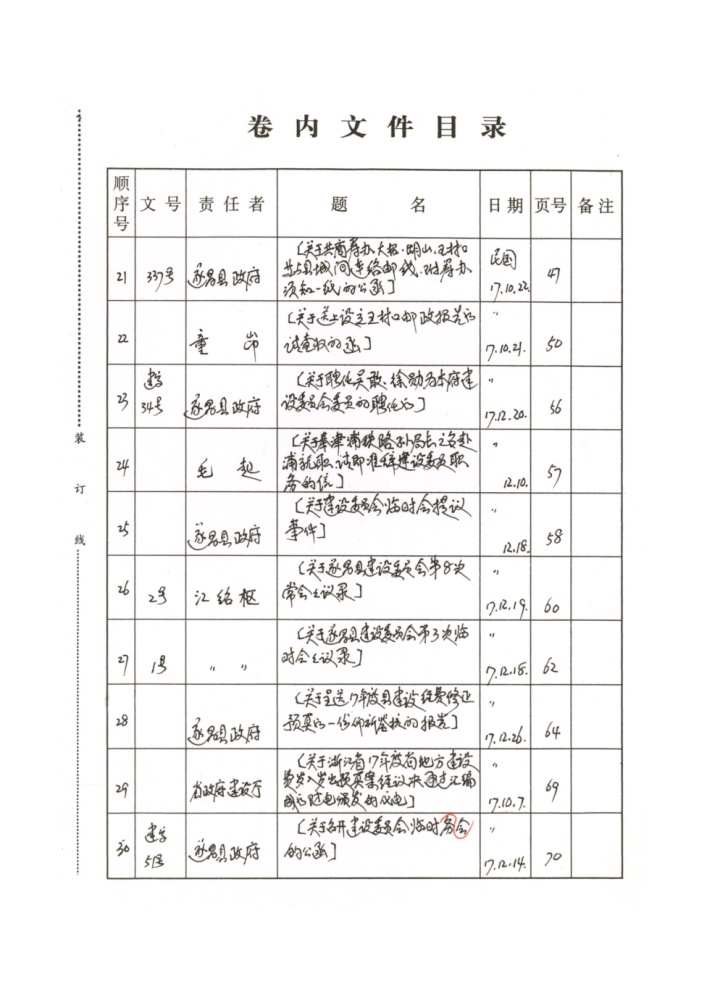 卷内文件目录
顺序号 文号 责任者 题名 日期 页号 备注
21 337号 遂昌县政府 [关于共商筹办大柘.湖山.王村口
与县城间连络邮线.附筹办
须知一纸的公函] 民国
17.10.22. 47
22 童 [关于送上设立王村口邮政报告
请查收的函] 〃
17.10.21. 50
23 建字
34号 遂昌县政府 [关于聘任吴敢、徐励为本府建
设委员会委员的聘任] 〃
17.12.20. 56
24 毛起 [关于奉津浦铁路局长之命赴
浦就职.请即准辞建设委员职
务的信] 〃
12.10. 57
25 遂昌县政府 [关于建设委员会临时会提议
事件] 〃
12.18. 58
26 2号 江绍枢 [关于遂昌县建设委员会第8次
常会会议录] 〃
17.12.19. 60
27 1号 〃 〃 [关于遂昌县建设委员会第3次临
时会会议录] 〃
17.12.18. 62
28 遂昌县政府 [关于呈送17年度县建设经费修正
预算一份仰祈鉴核的报告] 〃
17.12.26. 64
29 省政府建设厅 [关于浙江省17年度省地方建设
费岁入岁出预算案经议决通过汇编
颁发的代电] 〃
17.10.7. 69
30 建字
51号 遂昌县政府 [关于召开建设委员会临时会
的公函] 〃
17.12.14. 70
装
订
线